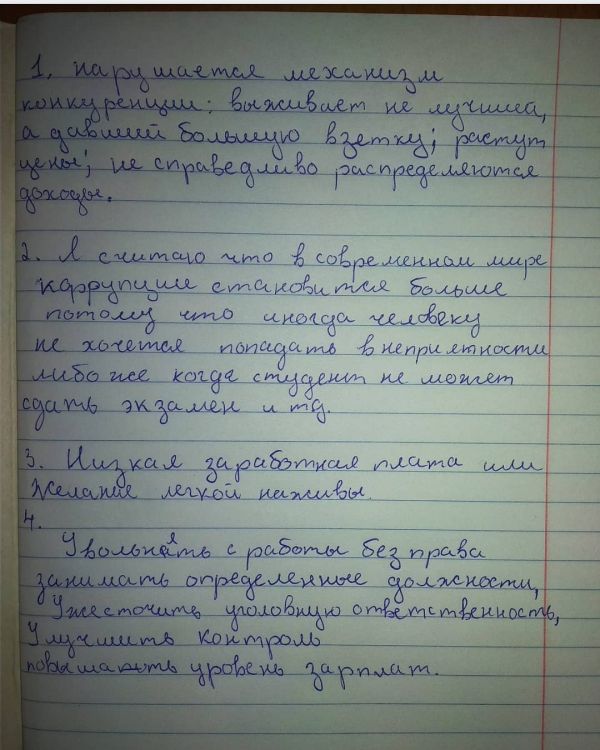 1. нарушается механизм
конкуренции: выживает не лучший,
а давший большую взетку; растут
цены; не справедливо распределяются
доходы.
2. Я считаю что в современном мире
каррупции становится больше
потому что иногда человеку
не хочется попадать в неприятности
либо же когда студент не может
сдать экзамен и тд.
3. Низкая заработная плата или
желание легкой наживы.
4.
Увольнять с работы без права
занимать определенные должности,
Ужесточить уголовную ответственность,
Улучшить контроль
повышать уровень зарплат.